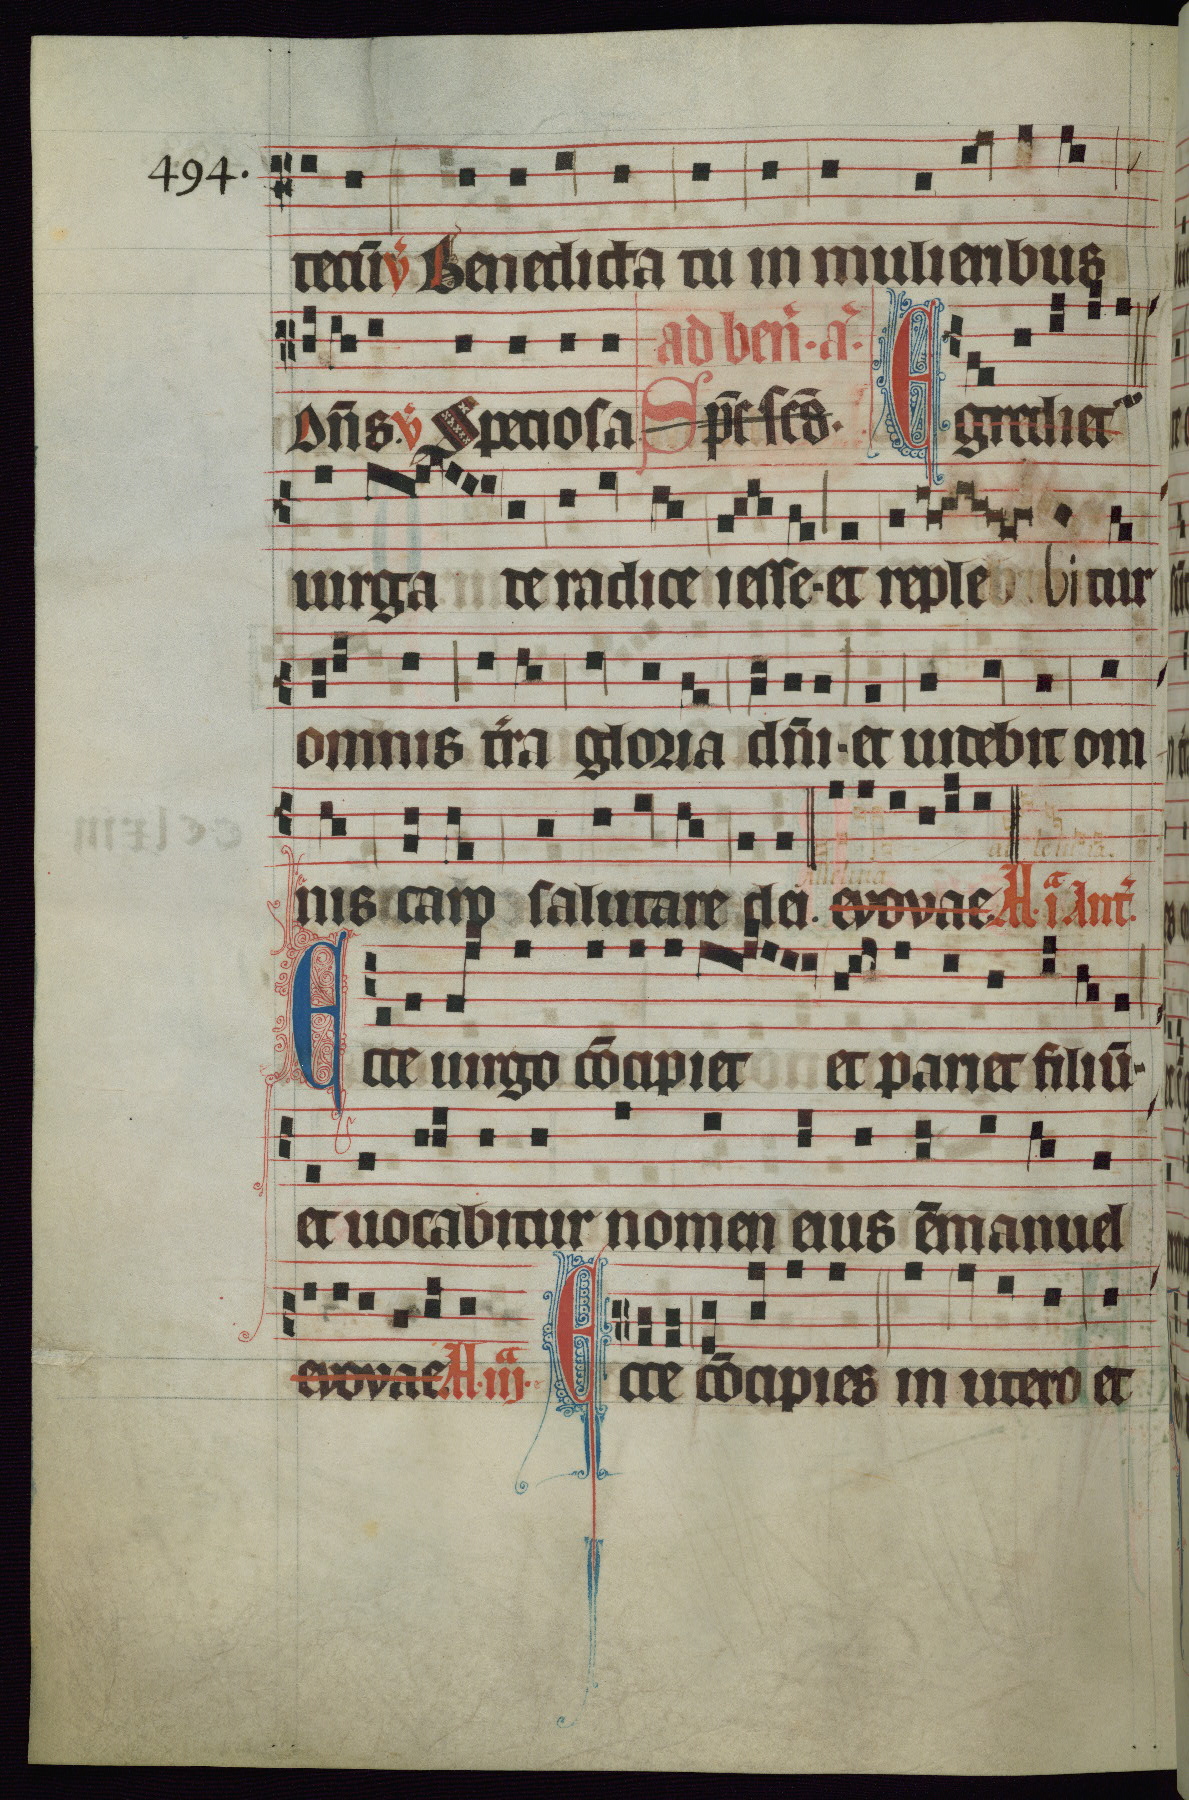 494.
tecū ℣ Benedicta tu in mulieribus
Dn̄s. ℣ Speciosa ad ben̄. a. Egrediet
Sp̄c scs̄.
uirga de radice iesse. et replebitur
omnis t̄ra gloria dn̄i. et uidebit om
nis caro salutare dei. evovae A. i. Ant.
Ecce uirgo cōcipiet et pariet filiū.
et uocabitur nomen eius ēmanuel
evovae A. iij. Ecce cōcipies in utero et